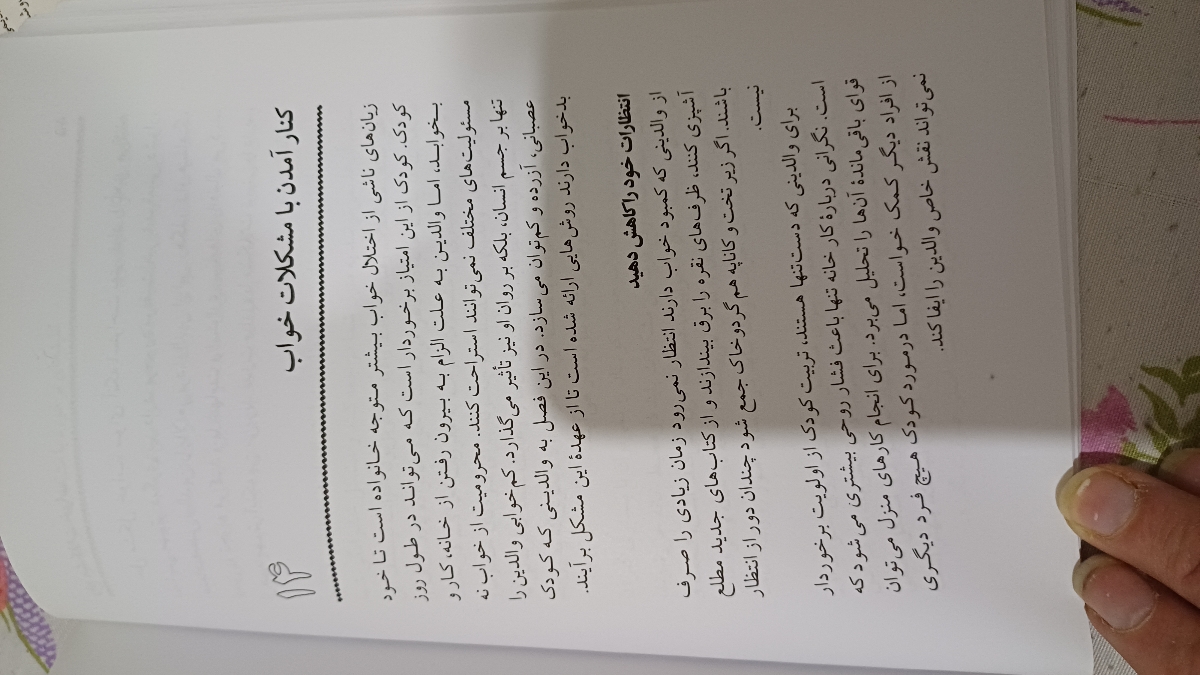 ۱۴
کنار آمدن با مشکلات خواب
زیان‌های ناشی از اختلال خواب بیشتر متوجه خانواده است تا خود
کودک. کودک از این امتیاز برخوردار است که می‌تواند در طول روز
بخوابد، اما والدین به علت الزام به بیرون رفتن از خانه، کار و
مسئولیت‌های مختلف نمی‌توانند استراحت کنند. محرومیت از خواب نه
تنها بر جسم انسان، بلکه بر روان او نیز تأثیر می‌گذارد. کم‌خوابی والدین را
عصبانی، آزرده و کم‌توان می‌سازد. در این فصل به والدینی که کودک
بدخواب دارند روش‌هایی ارائه شده است تا از عهدهٔ این مشکل برآیند.
انتظارات خود را کاهش دهید
از والدینی که کمبود خواب دارند انتظار نمی‌رود زمان زیادی را صرف
آشپزی کنند، ظرف‌های نقره را برق بیندازند و از کتاب‌های جدید مطلع
باشند. اگر زیر تخت و کاناپه هم گرد و خاک جمع شود چندان دور از انتظار
نیست.
برای والدینی که دست‌تنها هستند، تربیت کودک از اولویت برخوردار
است. نگرانی دربارهٔ کار خانه تنها باعث فشار روحی بیشتری می‌شود که
قوای باقی‌ماندهٔ آن‌ها را تحلیل می‌برد. برای انجام کارهای منزل می‌توان
از افراد دیگر کمک خواست، اما در مورد کودک هیچ فرد دیگری
نمی‌تواند نقش خاص والدین را ایفا کند.